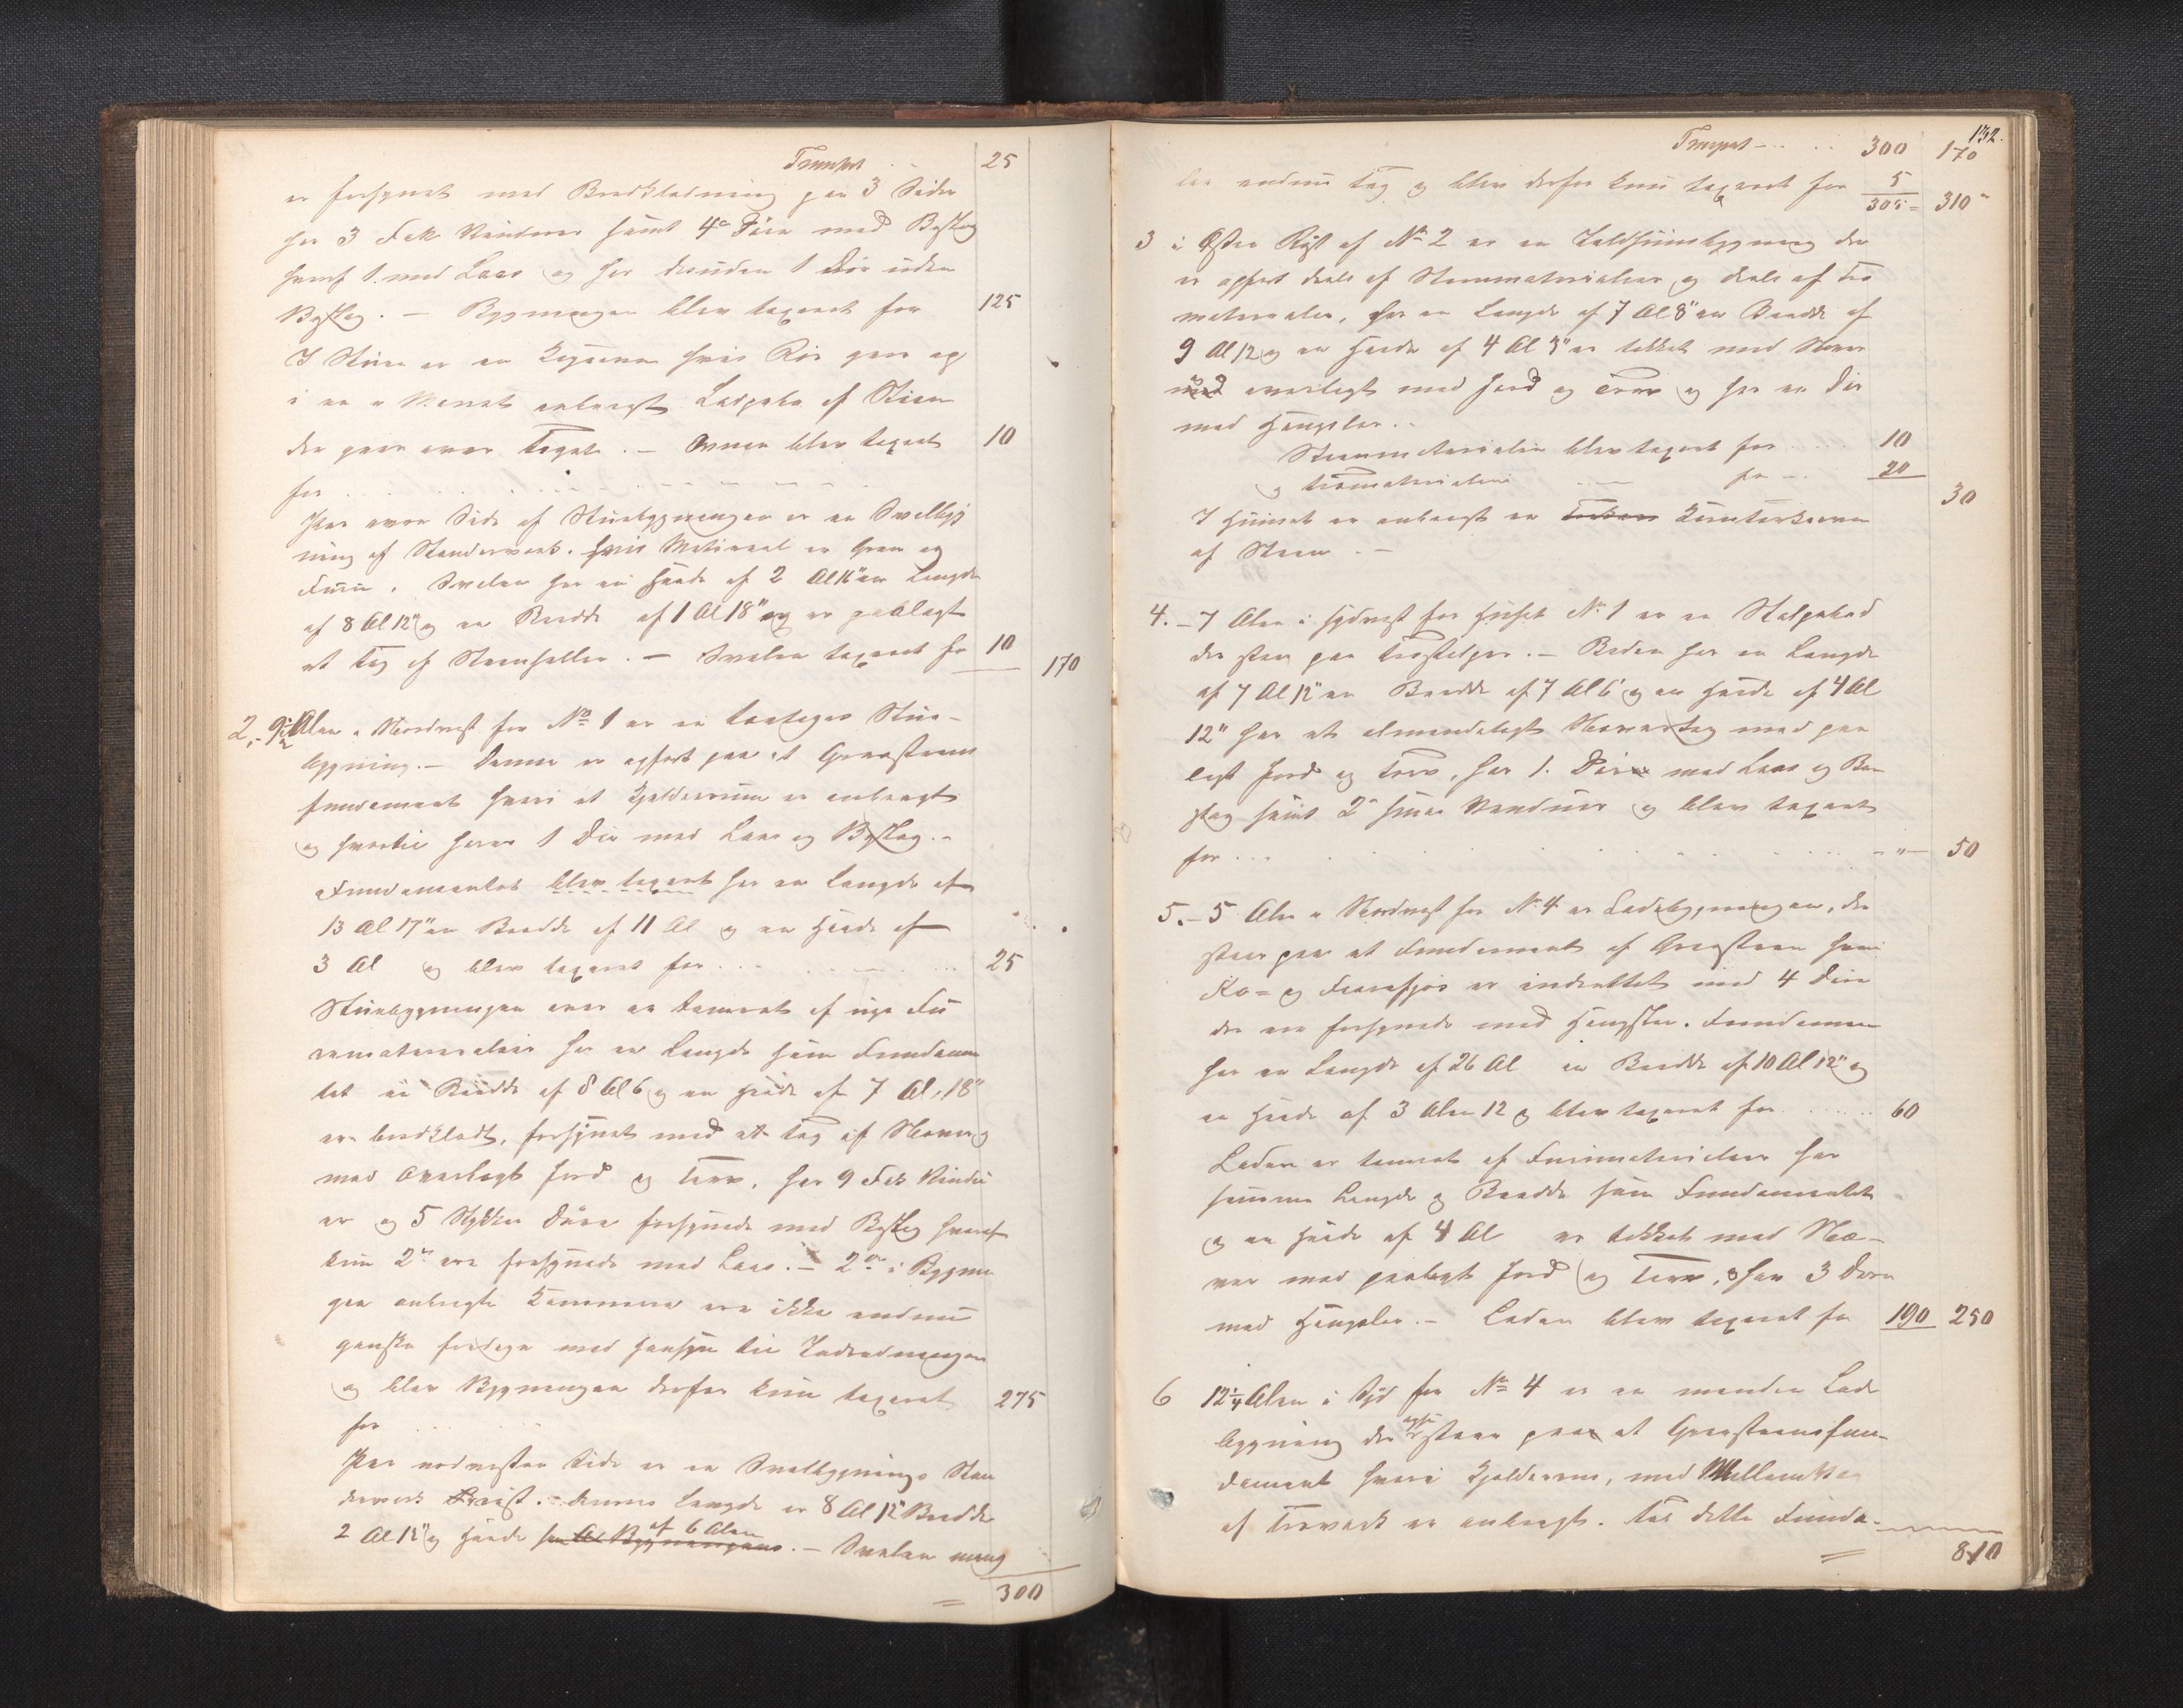 Transport 25
er forsynet med Bordklædning paa 3 Sider
har 3 Fek Vinduer samt 4 Døre med Beslag
hvoraf 1 med Laas og har desuden 1 Dør uden
Beslag. — Bygningen blev taxeret for 125
I Stuen er en hvis Rør gaar op
i en anbragt af Steen
der gaar over Taget. — Ovnen blev taxeret 10
for
Paa øvre Side af Stuebygningen er en Svalbyg
ning af Standerværk. hvis Material er Gran og
Furu. Svalen har en Høide af 2 Al 16" en Længde
af 8 Al 12" og en Bredde af 1 Al 18" og er paalagt
et Tag af Steenheller. — Svalen taxeret for 10
170
2. 9 1/2 Alen i Nordvest for No 1 er en toetages Stue-
bygning. — Denne er opført paa et Graasteens
fundament hvori et Kjelderrum er anbragt
og hvortil hører 1 Dør med Laas og Beslag. —
Fundamentet blev taxeret har en Længde af
13 Al 17" en Bredde af 11 Al og en Høide af
3 Al og blev taxeret for 25
Stuebygningen som er tømret af nye Fu
rematerialier har en Længde som Fundamen
tet en Bredde af 8 Al 6 og en Høide af 7 Al, 18"
er bordklædt, forsynet med et Tag af Næver og
med overlagt Jord og Torv, har 9 Fek Vindu
er og 5 Stykker Døre forsynede med Beslag hvoraf
kun 2de ere forsynede med Laas. — 2de i Bygnin
gen anbragte Kammere ere ikke endnu
ganske færdige med Hensyn til Indredningen
og blev Bygningen derfor kun taxeret 275
for
Paa nordvestre Side er en Svalbygning Stan
derværk Reist. — dennes Længde er 8 Al 12" Bredde
2 Al 12" og Høide som Bygningens af 6 Alen. — Svalen mang
300
132.
Transport 300 170
ler endnu Tag og blev derfor kun taxeret for 5
305 310
3 i Øster Rigt af No 2 er en Ildhuusbygning der
er opført deels af Steenmaterialier og deels af Træ
materialer, har en Længde af 7 Al 8" en Bredde af
9 Al 12 og en Høide af 4 Al 3" er tækket med Næver
med overlagt med Jord og Torv og har en Dør
med Hængsler.
Steenmaterialier blev taxeret for 10
og Træmaterialier — for 20
30
I Huuset er anbragt en
af Steen. —
4. 7 Alen i Sydvest for Huset No 1 er en Stolpebod
der staar paa Træstolper. — Boden har en Længde
af 7 Al 12" en Bredde af 7 Al 6 og en Høide af 4 Al
12" har et almindeligt Nævertag med paa
lagt Jord og Torv, har 1. Dør med Laas og Be
slag samt 2 smaa Vinduer og blev taxeret
for 50
5. 5 Alen i Nordvest for No 4 er Ladebygningen, der
staar paa et Fundament af Graasteen hvori
Ko- og Faarefjøs er indrettet med 4 Døre
der ere forsynede med Hængsler. Fundamen
har en Længde af 26 Al en Bredde af 10 Al 12" og
en Høide af 3 Alen 12 og blev taxeret for 60
Laden er tømret af Furumaterialier har
samme Længde og Bredde som Fundamentet
og en Høide af 4 Al er tækket med Næ-
ver med paalagt Jord og Torv, har 3 Døre
med Hængsler. — Laden blev taxeret for 190 250
6 12 1/4 Alen i Syd for No 4 er en mindre Lade
bygning der ogsaa staar paa et Graasteensfun-
dament hvori Kjelderrum, med
af Træværk er anbragt. Til dette Funda-
810